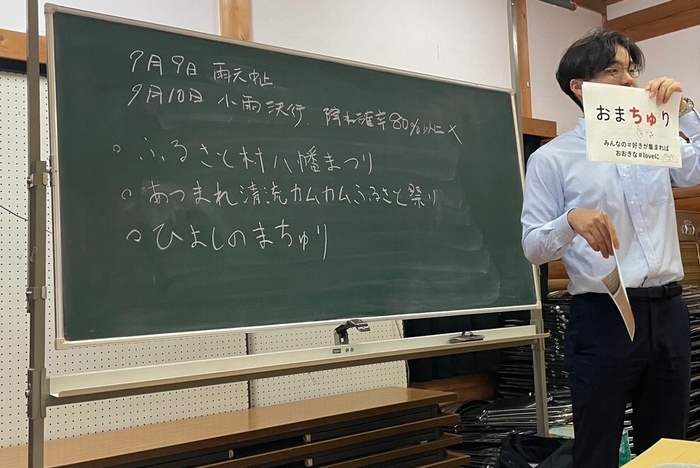 9月9日 雨天中止
9月10日 小雨決行 降水確率80%以上 ×
○ ふるさと村八幡まつり
○ あつまれ清流カムカムふるさと祭り
○ ひよしのまちゅり
おまちゅり
みんなの#好きが集まれば
おおきな#loveに